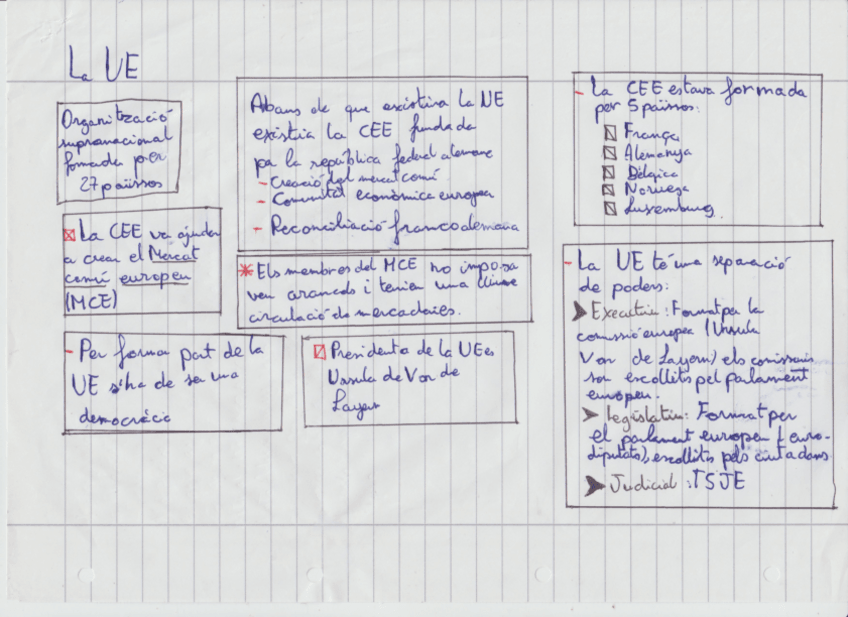 La UE
Organització
supranacional
formada per
27 països
Abans de que existira la UE
existia la CEE fundada
pa la república federal alemane
- Creació del mercat comú
- Comunitat econòmica europea
- Reconciliació franco alemana
- La CEE estava formada
per 5 països:
França
Alemanya
Bèlgica
Noruega
Luxemburg.
La CEE va ajudar
a crear el Mercat
comú europeu
(MCE)
* Els membres del MCE no imposa
ven aranzels i tenien una lliure
circulació de mercaderies.
- Per formar part de la
UE s'ha de ser una
democràcia
Presidenta de la UE es
Ursula de Von de
Layen
- La UE té una separació
de poders:
Executiu: Format per la
comissió europea (Ursula
Von de Layern) els comissaris
son escollits pel parlament
europeu.
legislatiu: Format per
el parlament europeu (euro-
diputats), escollits pels ciutadans
Judicial: TSJE